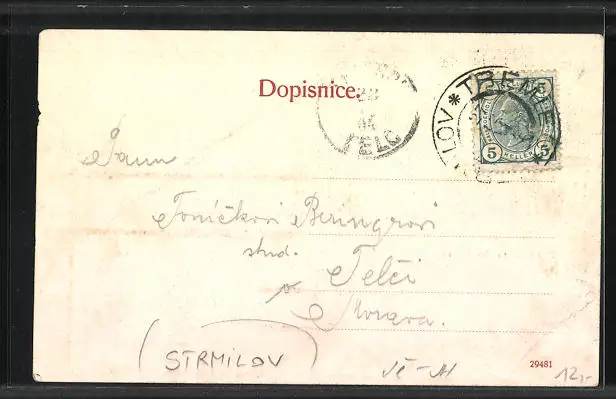 Dopisnice.
TELČ
5 HELLER 5
Panu
Toníčkovi Beringrovi
stud.
v Telči
Morava.
(STRMILOV)
29481
12,-